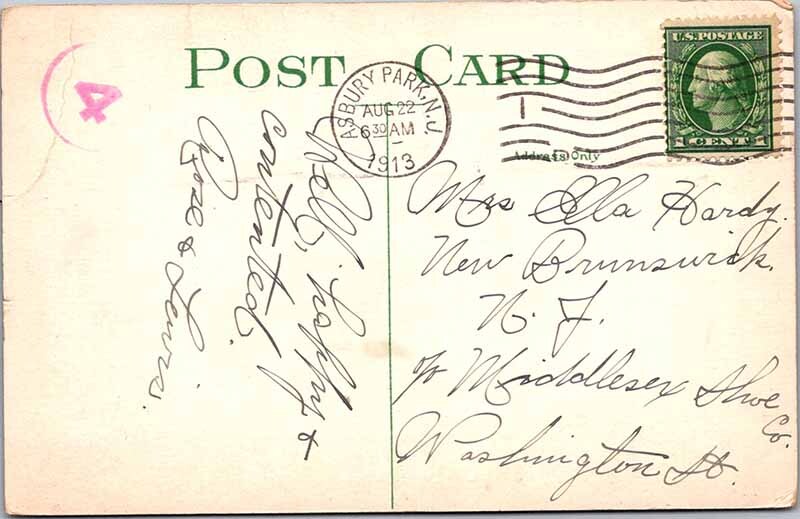 POST CARD
4
ASBURY PARK, N.J.
AUG 22
6 30 AM
1913
1
U.S. POSTAGE
1 CENT 1
Address Only
Well, happy &
contented.
Rose & Lewis.
Mrs Ella Hardy.
New Brunswick.
N. J.
c/o Middlesex Shoe
Co.
Washington St.